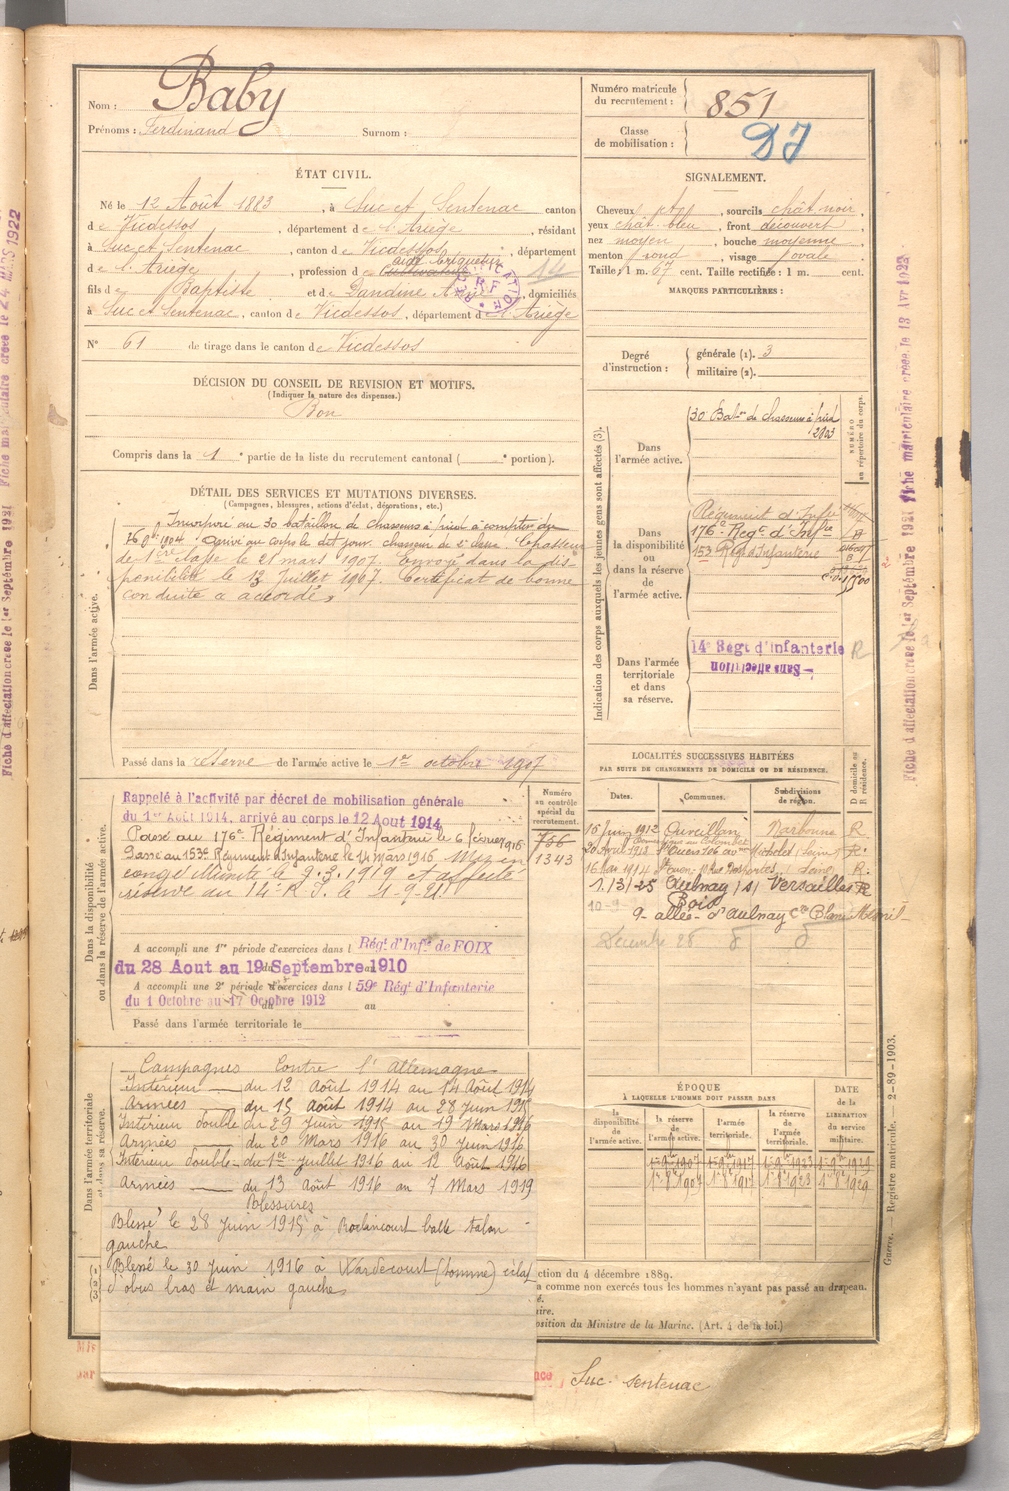 Nom : Baby
Prénoms : Ferdinand Surnom :
Numéro matricule du recrutement : 851
Classe de mobilisation : DJ
ÉTAT CIVIL.
Né le 12 Août 1883, à Suc et Sentenac canton
de Vicdessos, département de l'Ariège, résidant
à Suc et Sentenac, canton de Vicdessos, département
de l'Ariège, profession de Cultivateur aide briquetier
14
fils de Baptiste et de Dandine, domiciliés
à Suc et Sentenac, canton de Vicdessos, département de l'Ariège
N° 61 de tirage dans le canton de Vicdessos
SIGNALEMENT.
Cheveux, sourcils chât noir,
yeux chât. bleu, front découvert,
nez moyen, bouche moyenne,
menton rond, visage ovale.
Taille : 1 m. 67 cent. Taille rectifiée : 1 m. cent.
MARQUES PARTICULIÈRES :
Degré d'instruction : générale (1). 3
militaire (2).
DÉCISION DU CONSEIL DE REVISION ET MOTIFS.
(Indiquer la nature des dispenses.)
Bon
Compris dans la 1e partie de la liste du recrutement cantonal ( e portion).
DÉTAIL DES SERVICES ET MUTATIONS DIVERSES.
(Campagnes, blessures, actions d'éclat, décorations, etc.)
Dans l'armée active.
Incorporé au 30 bataillon de chasseurs à pied à compter du
1904. Arrivé au corps le dit jour. chasseur de 2e classe. Chasseur
de 1ère classe le 21 mars 1907. Envoyé dans la dis-
ponibilité le 13 Juillet 1907. Certificat de bonne
conduite a accordé.
Passé dans la réserve de l'armée active le 1er octobre 1907
Indication des corps auxquels les jeunes gens sont affectés (3).
NUMÉRO au répertoire du corps.
Dans l'armée active.
30 Baton de chasseurs à pied
2803
Dans la disponibilité ou dans la réserve de l'armée active.
Régiment d'Infie
176e Regt d'Infie
153 Régt d'Infanterie
Dans l'armée territoriale et dans sa réserve.
14e Régt d'Infanterie R
Sans affectation
Dans la disponibilité ou dans la réserve de l'armée active.
Rappelé à l'activité par décret de mobilisation générale
du 1er Août 1914, arrivé au corps le 12 Aout 1914
Passé au 176e Régiment d'Infanterie le 6 février 1916
Passé au 153e Régiment d'Infanterie le 14 mars 1916 Mis en
congé illimité le 9.3.1919 et affecté
réserve au 14e R I. le 1-9-21
Numéro au contrôle spécial du recrutement.
756
1343
A accompli une 1re période d'exercices dans l Régt d'Infie de FOIX
du 28 Aout au 19 Septembre 1910
A accompli une 2e période d'exercices dans l 59e Régt d'Infanterie
du 1 Octobre au 17 Octobre 1912 au
Passé dans l'armée territoriale le
LOCALITÉS SUCCESSIVES HABITÉES
PAR SUITE DE CHANGEMENTS DE DOMICILE OU DE RÉSIDENCE.
Dates. Communes. Subdivisions de région. D domicile ou R résidence.
Juin 1912 Ouveillan Narbonne R
20 Aout 1918 St Ouen 106 av Michelet Seine R.
St Ouen Seine R.
1/3/25 Aulnay s/ Bois Versailles R
9 allée d'Aulnay Blanc Mesnil
Decembre 28
Dans l'armée territoriale et dans sa réserve.
Campagnes Contre l'Allemagne
Intérieur du 12 Août 1914 au 14 Août 1914
Armées du 15 Août 1914 au 28 Juin 1915
Intérieur double du 29 Juin 1915 au 19 Mars 1916
Armées du 20 Mars 1916 au 30 Juin 1916
Intérieur double du 1er Juillet 1916 au 12 Août 1916
Armées du 13 Août 1916 au 7 Mars 1919
Blessures
Blessé le 28 Juin 1915 à Roclincourt balle talon
gauche
Blessé le 30 juin 1916 à Hardecourt (Somme) éclat
d'obus bras et main gauche.
ÉPOQUE
À LAQUELLE L'HOMME DOIT PASSER DANS
la disponibilité de l'armée active. la réserve de l'armée active. l'armée territoriale. la réserve de l'armée territoriale. DATE de la LIBÉRATION du service militaire.
ction du 4 décembre 1889.
a comme non exercés tous les hommes n'ayant pas passé au drapeau.
osition du Ministre de la Marine. (Art. 4 de la loi.)
Suc. sentenac
Guerre. — Registre matricule. — 2-89-1903.
Fiche d'affectation creee le 1er Septembre 1921 Fiche matriculaire creee le 13 Avr 1922
Fiche d'affectation creee le 1er Septembre 1921 Fiche matriculaire creee le 24 MARS 1922